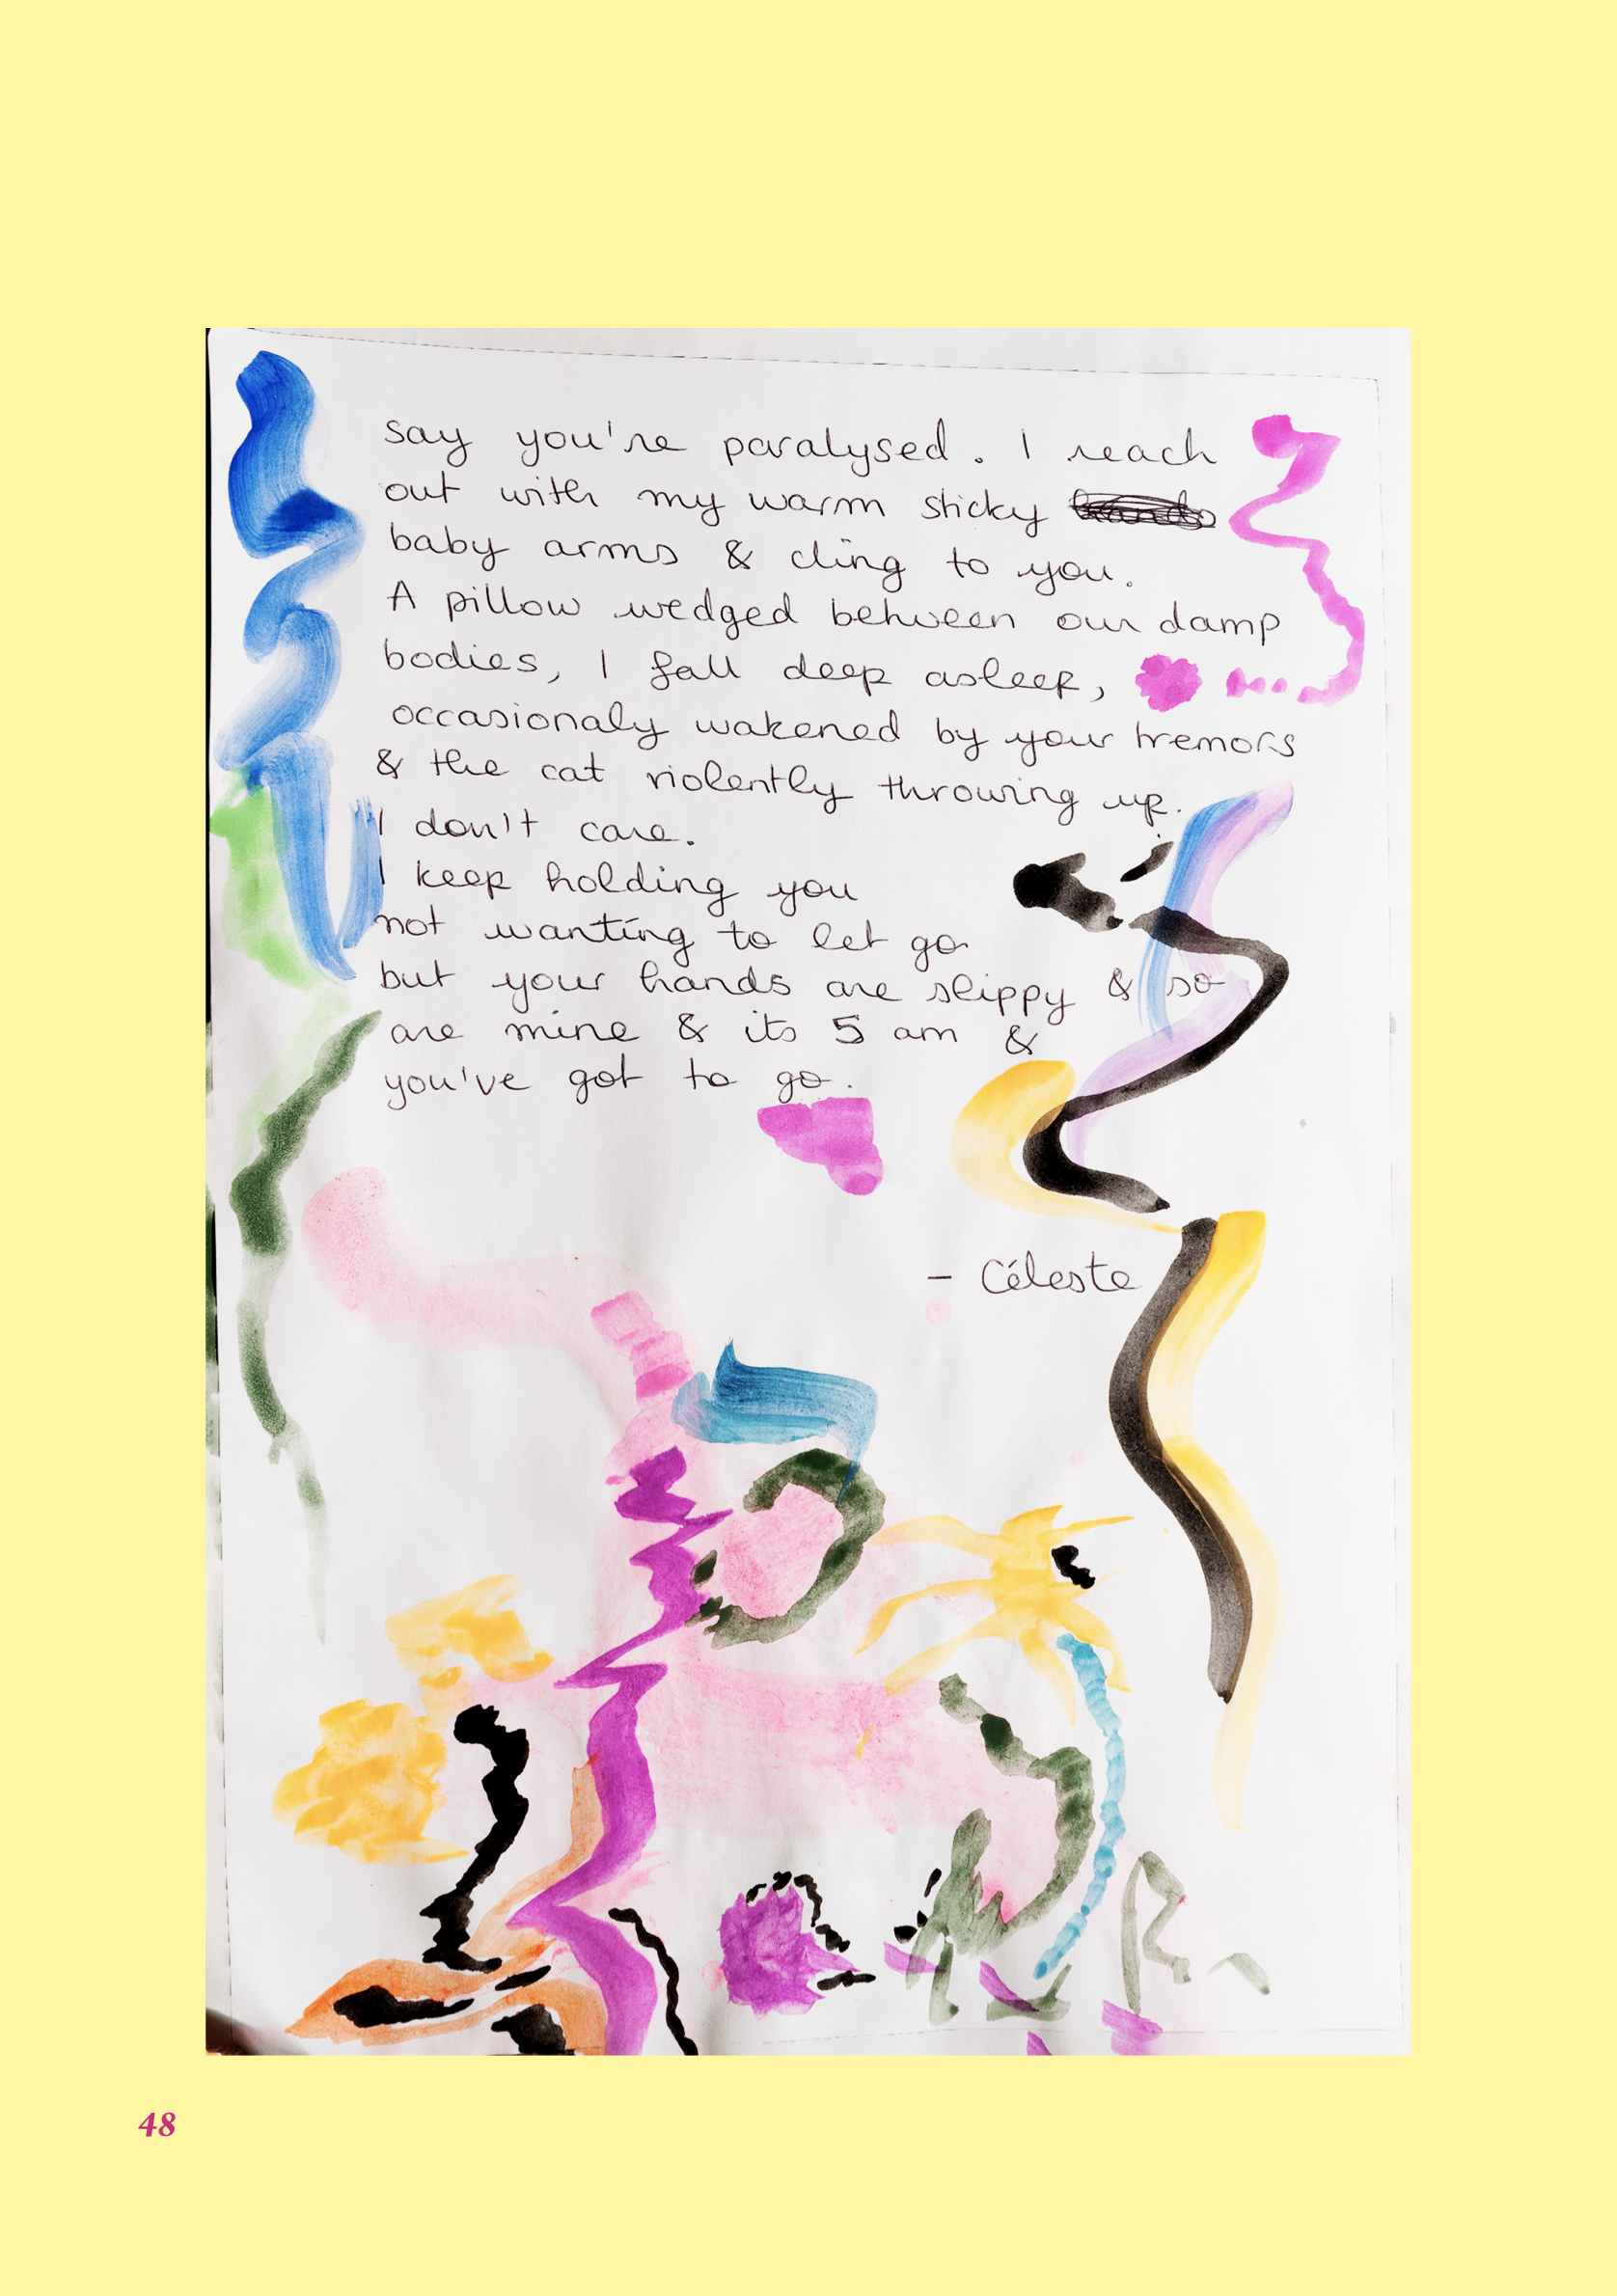 say you're paralysed. I reach
out with my warm sticky
baby arms & cling to you.
A pillow wedged between our damp
bodies, I fall deep asleep,
occasionaly wakened by your tremors
& the cat violently throwing up.
I don't care.
I keep holding you
not wanting to let go
but your hands are slippy & so
are mine & its 5 am &
you've got to go.
- Céleste
48